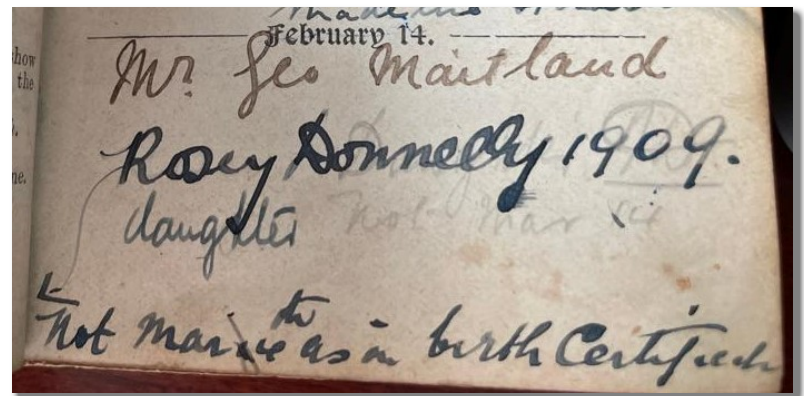 February 14.
show
the
Mr. Geo Maitland
Rosey Donnelly 1909.
daughter
Not Mar 14
Not Mar 14th as in birth Certificate